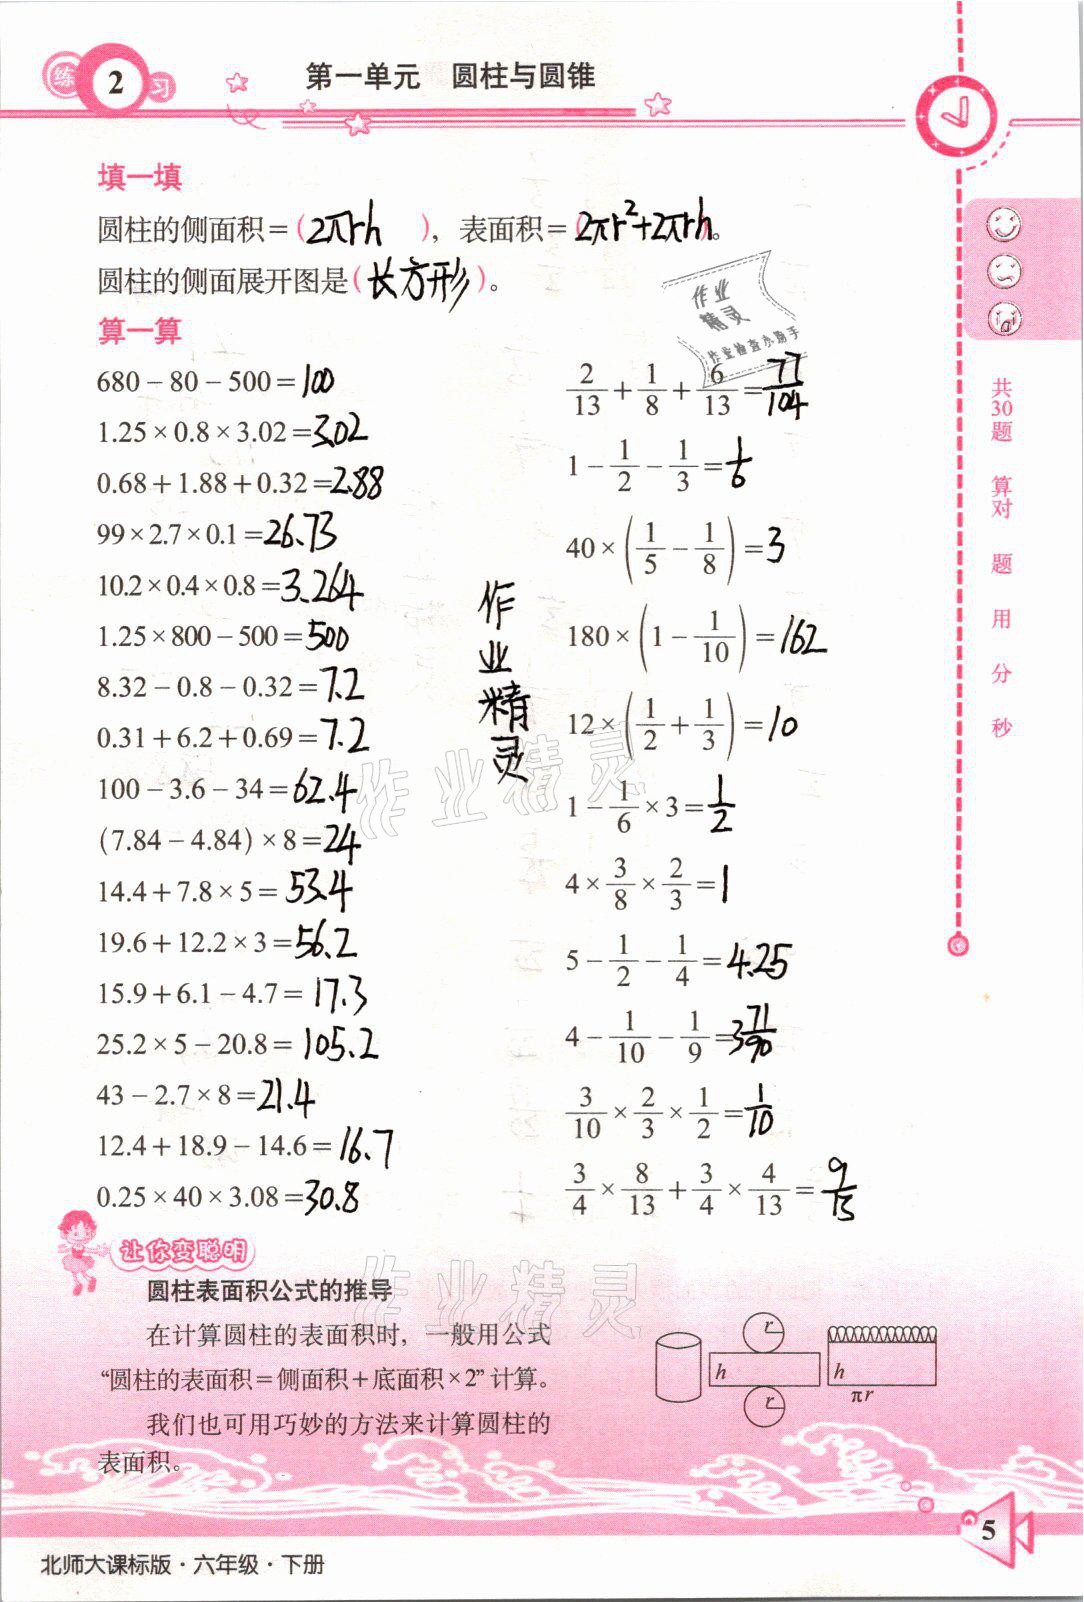 练2习
第一单元 圆柱与圆锥
填一填
圆柱的侧面积=(2πrh),表面积=(2πr²+2πrh)。
圆柱的侧面展开图是(长方形)。
算一算
680-80-500=100
1.25×0.8×3.02=3.02
0.68+1.88+0.32=2.88
99×2.7×0.1=26.73
10.2×0.4×0.8=3.264
1.25×800-500=500
8.32-0.8-0.32=7.2
0.31+6.2+0.69=7.2
100-3.6-34=62.4
(7.84-4.84)×8=24
14.4+7.8×5=53.4
19.6+12.2×3=56.2
15.9+6.1-4.7=17.3
25.2×5-20.8=105.2
43-2.7×8=21.4
12.4+18.9-14.6=16.7
0.25×40×3.08=30.8
2/13+1/8+6/13=77/104
1-1/2-1/3=1/6
40×(1/5-1/8)=3
180×(1-1/10)=162
12×(1/2+1/3)=10
1-1/6×3=1/2
4×3/8×2/3=1
5-1/2-1/4=4.25
4-1/10-1/9=3 71/90
3/10×2/3×1/2=1/10
3/4×8/13+3/4×4/13=9/13
作业精灵
作业
精灵
作业检查小助手
作业精灵
共30题 算对 题 用 分 秒
让你变聪明
圆柱表面积公式的推导
在计算圆柱的表面积时,一般用公式
“圆柱的表面积=侧面积+底面积×2”计算。
我们也可用巧妙的方法来计算圆柱的
表面积。
作业精灵
r
h
r
h
πr
5
北师大课标版·六年级·下册